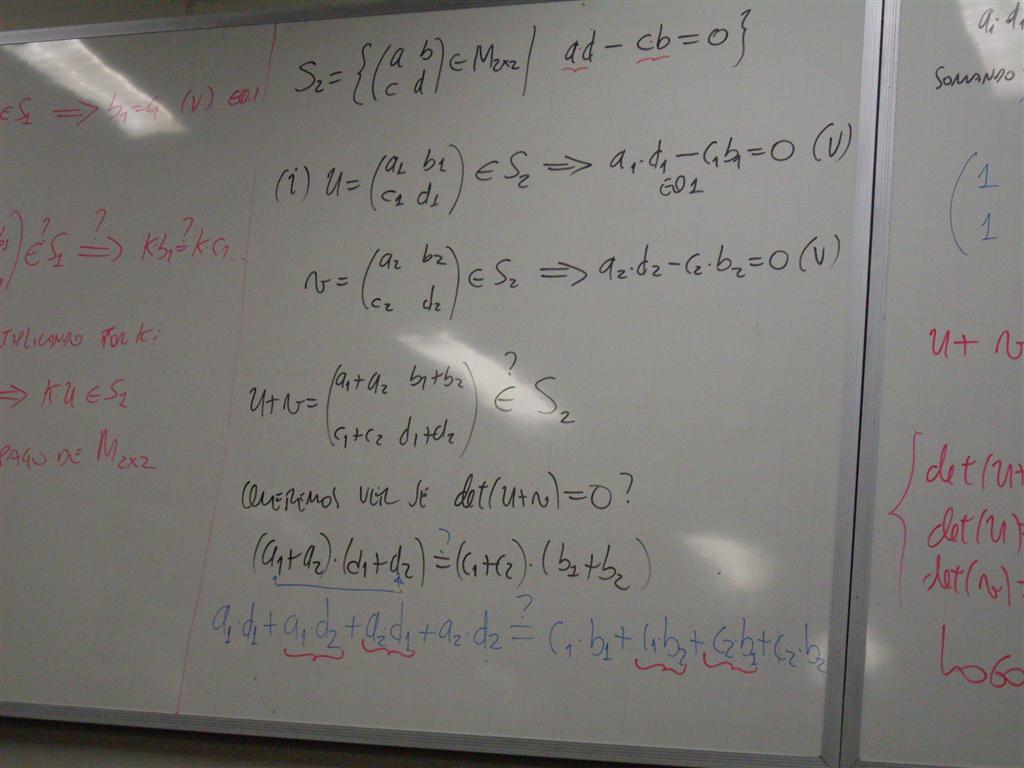 ∈ S₁ ⟹ b₁=c₁ (V)
∈ S₁ ⟹ k·b₁=k·c₁
? ? ?
POR K:
⟹ K·U ∈ S₂
DE M₂ₓ₂
S₂={(a b; c d) ∈ M₂ₓ₂ | ad − cb = 0}
(i) U=(a₁ b₁; c₁ d₁) ∈ S₂ ⟹ a₁·d₁ − c₁b₁=0 (V)
v=(a₂ b₂; c₂ d₂) ∈ S₂ ⟹ a₂·d₂−c₂·b₂=0 (V)
?
U+v=(a₁+a₂ b₁+b₂; c₁+c₂ d₁+d₂) ∈ S₂
QUEREMOS VER SE det(U+v)=0?
?
(a₁+a₂)·(d₁+d₂)=(c₁+c₂)·(b₁+b₂)
?
a₁·d₁+a₁·d₂+a₂·d₁+a₂·d₂ = c₁·b₁+c₁·b₂+c₂·b₁+c₂·b₂
SOMANDO
(1
1
U+ v
det(U+
det(U)
det(v)
LOGO